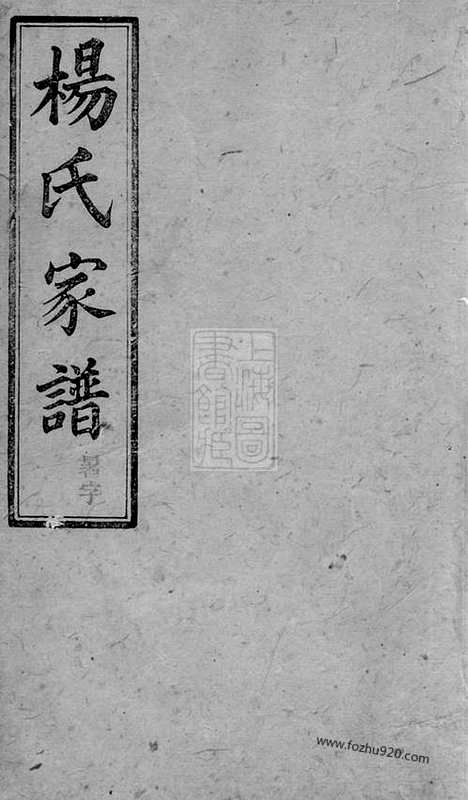 楊氏家譜
暑字
上海圖
書館藏
www.fozhu920.com